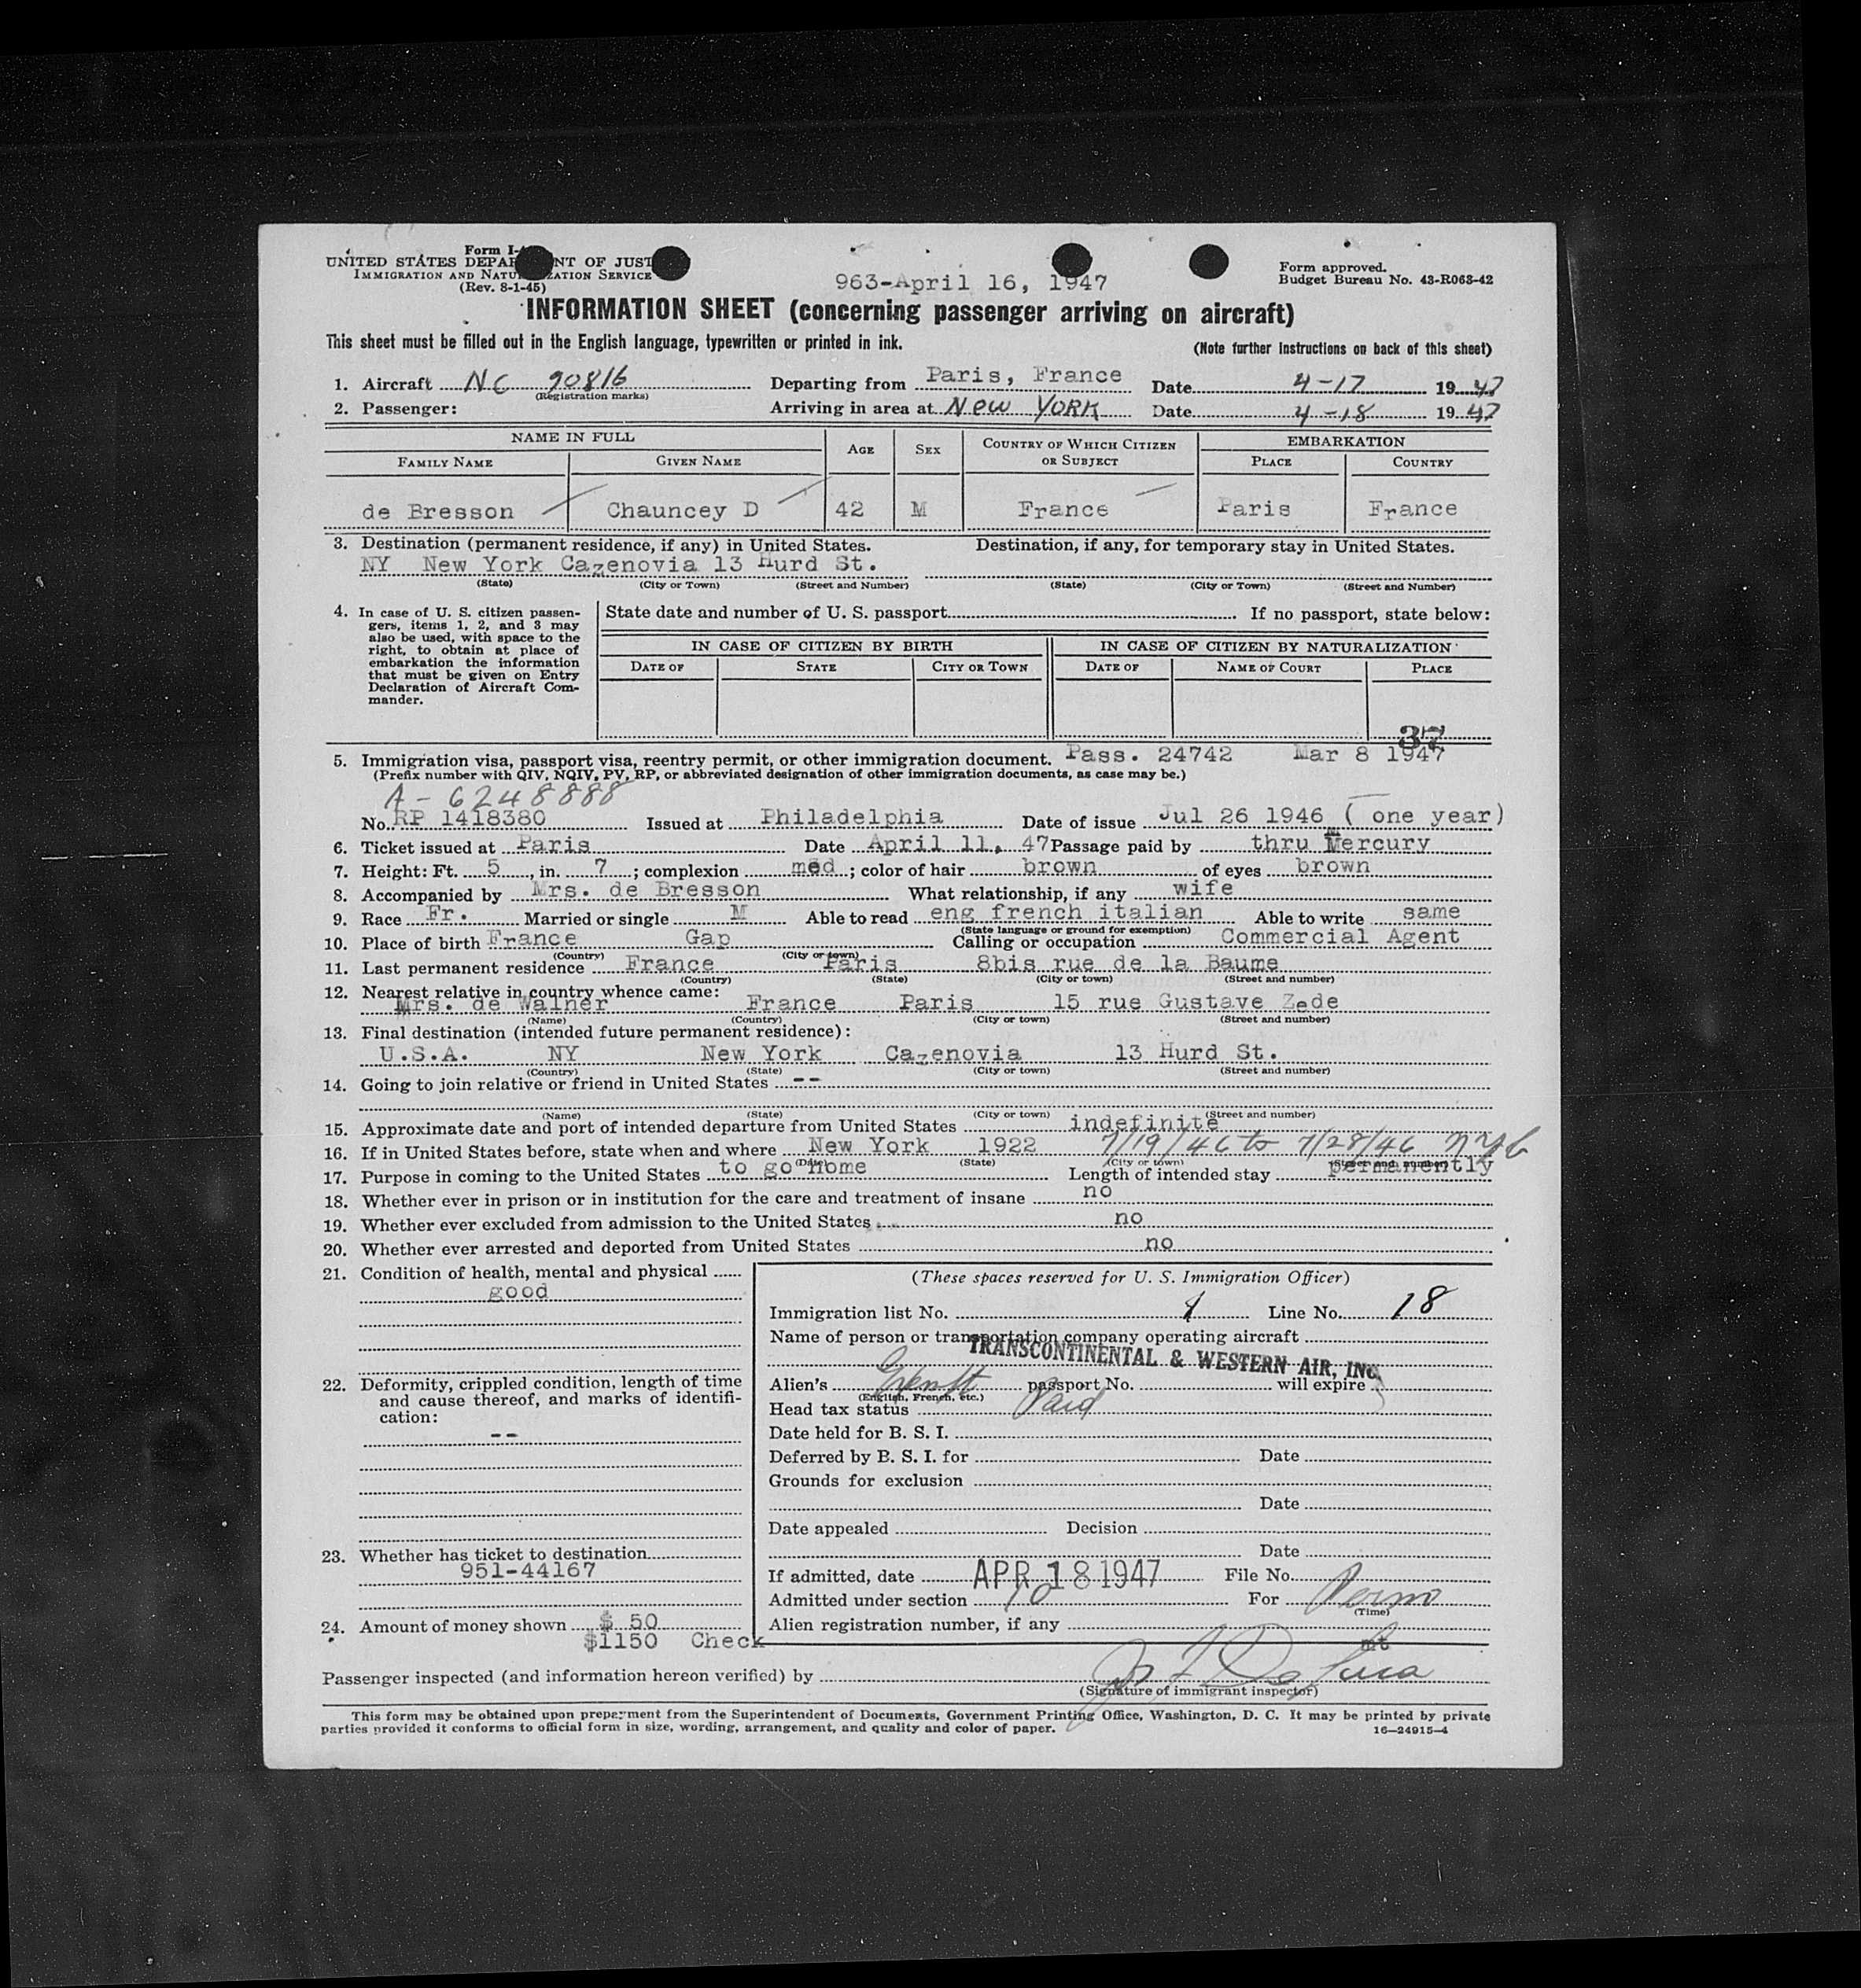 Form I-
UNITED STATES DEPAR NT OF JUST
IMMIGRATION AND NATU ZATION SERVICE
(Rev. 8-1-45)
963-April 16, 1947
Form approved.
Budget Bureau No. 43-R063-42
INFORMATION SHEET (concerning passenger arriving on aircraft)
This sheet must be filled out in the English language, typewritten or printed in ink.
(Note further instructions on back of this sheet)
1. Aircraft NC 90816 Departing from Paris, France Date 4-17 1947
(Registration marks)
2. Passenger: Arriving in area at New York Date 4-18 1947
NAME IN FULL AGE SEX COUNTRY OF WHICH CITIZEN OR SUBJECT EMBARKATION
FAMILY NAME GIVEN NAME PLACE COUNTRY
de Bresson Chauncey D 42 M France Paris France
3. Destination (permanent residence, if any) in United States. Destination, if any, for temporary stay in United States.
NY New York Cazenovia 13 Hurd St.
(State) (City or Town) (Street and Number) (State) (City or Town) (Street and Number)
4. In case of U. S. citizen passen-
gers, items 1, 2, and 3 may
also be used, with space to the
right, to obtain at place of
embarkation the information
that must be given on Entry
Declaration of Aircraft Com-
mander.
State date and number of U. S. passport If no passport, state below:
IN CASE OF CITIZEN BY BIRTH IN CASE OF CITIZEN BY NATURALIZATION
DATE OF STATE CITY OR TOWN DATE OF NAME OF COURT PLACE
37
5. Immigration visa, passport visa, reentry permit, or other immigration document. Pass. 24742 Mar 8 1947
(Prefix number with QIV, NQIV, PV, RP, or abbreviated designation of other immigration documents, as case may be.)
A-6248888
No. RP 1418380 Issued at Philadelphia Date of issue Jul 26 1946 (one year)
6. Ticket issued at Paris Date April 11, 47 Passage paid by thru Mercury
7. Height: Ft. 5, in. 7; complexion med; color of hair brown of eyes brown
8. Accompanied by Mrs. de Bresson What relationship, if any wife
9. Race Fr. Married or single M Able to read eng french italian Able to write same
(State language or ground for exemption)
10. Place of birth France Gap Calling or occupation Commercial Agent
(Country) (City or town)
11. Last permanent residence France Paris 8bis rue de la Baume
(Country) (State) (City or town) (Street and number)
12. Nearest relative in country whence came:
Mrs. de Walner France Paris 15 rue Gustave Zede
(Name) (Country) (City or town) (Street and number)
13. Final destination (intended future permanent residence):
U.S.A. NY New York Cazenovia 13 Hurd St.
(Country) (State) (City or town) (Street and number)
14. Going to join relative or friend in United States --
(Name) (State) (City or town) (Street and number)
15. Approximate date and port of intended departure from United States indefinite
16. If in United States before, state when and where New York 1922 7/19/46 to 7/28/46 NYC
(Date) (State) (City or town) (Street and number)
17. Purpose in coming to the United States to go home Length of intended stay permanently
18. Whether ever in prison or in institution for the care and treatment of insane no
19. Whether ever excluded from admission to the United States no
20. Whether ever arrested and deported from United States no
21. Condition of health, mental and physical
good
22. Deformity, crippled condition, length of time
and cause thereof, and marks of identifi-
cation:
--
23. Whether has ticket to destination
951-44167
24. Amount of money shown $ 50
$1150 Check
(These spaces reserved for U. S. Immigration Officer)
Immigration list No. 1 Line No. 18
Name of person or transportation company operating aircraft
TRANSCONTINENTAL & WESTERN AIR, INC.
Alien's passport No. will expire
(English, French, etc.)
Head tax status Paid
Date held for B. S. I.
Deferred by B. S. I. for Date
Grounds for exclusion
Date
Date appealed Decision
Date
If admitted, date APR 18 1947 File No.
Admitted under section 10 For Perm
(Time)
Alien registration number, if any
mt
Passenger inspected (and information hereon verified) by
(Signature of immigrant inspector)
This form may be obtained upon prepayment from the Superintendent of Documents, Government Printing Office, Washington, D. C. It may be printed by private
parties provided it conforms to official form in size, wording, arrangement, and quality and color of paper. 16—24915-4